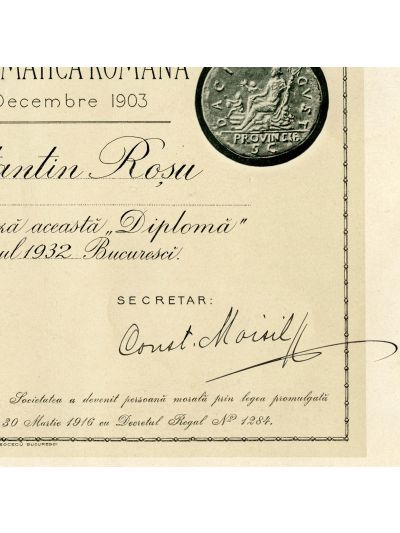 MATICA ROMANA
Decembre 1903
DACIA AVGVST
PROVINCIA
S C
antin Roșu
ză această „Diplomă”
ul 1932 Bucuresci.
SECRETAR:
Const. Moisil
Societatea a devenit persoană morală prin legea promulgată
30 Martie 1916 cu Decretul Regal Nº 1284.
SOCECŬ BUCURESCI